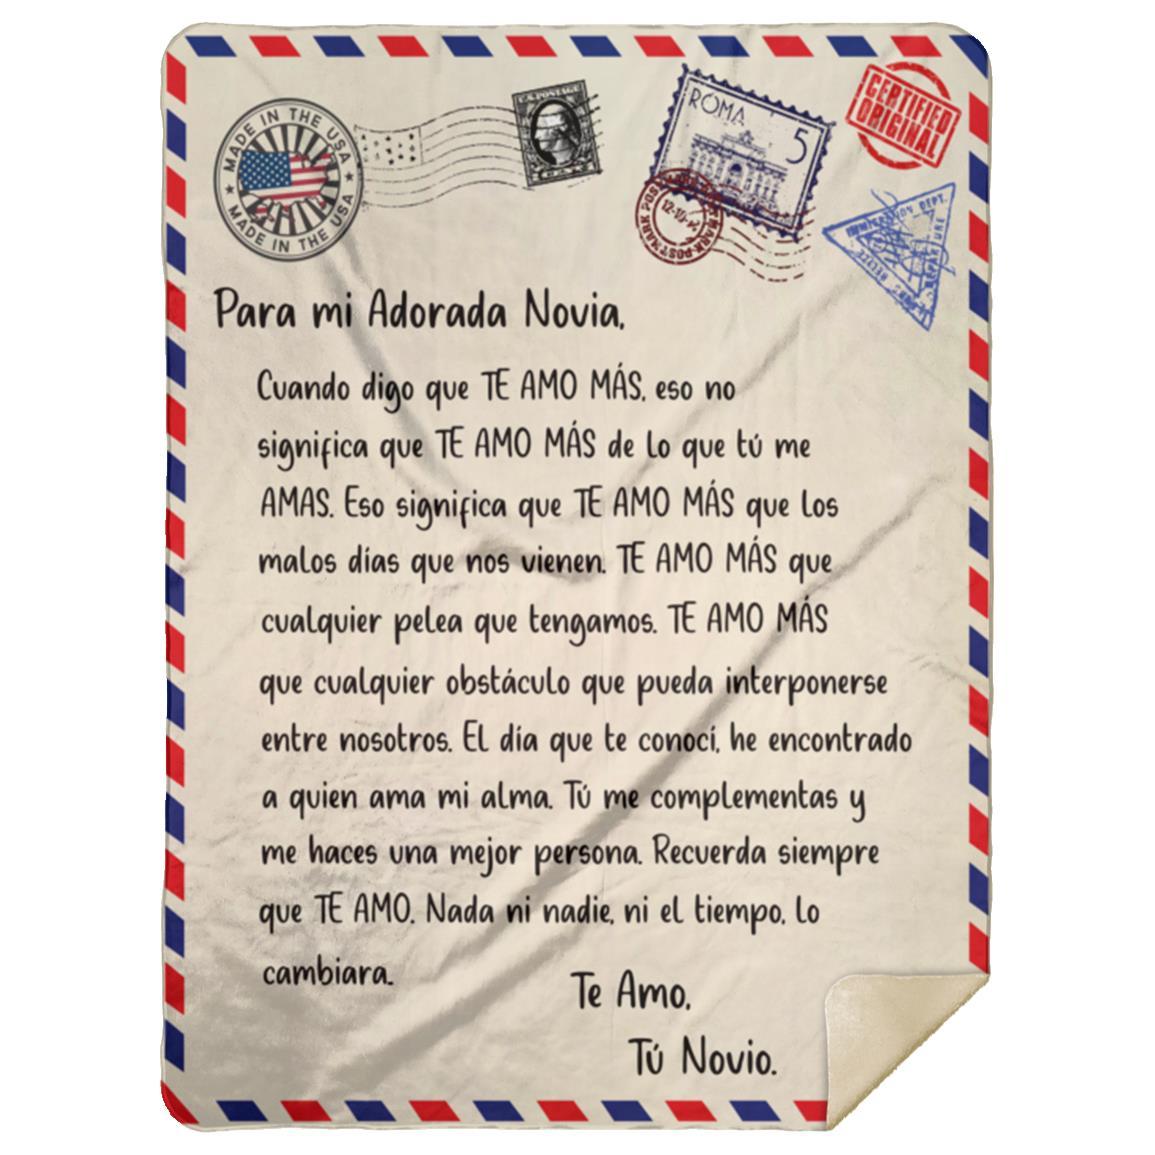 MADE IN THE USA
MADE IN THE USA
U.S. POSTAGE
ROMA
5
CERTIFIED
ORIGINAL
Para mi Adorada Novia,
Cuando digo que TE AMO MÁS, eso no
significa que TE AMO MÁS de lo que tú me
AMAS. Eso significa que TE AMO MÁS que los
malos días que nos vienen. TE AMO MÁS que
cualquier pelea que tengamos. TE AMO MÁS
que cualquier obstáculo que pueda interponerse
entre nosotros. El día que te conocí, he encontrado
a quien ama mi alma. Tú me complementas y
me haces una mejor persona. Recuerda siempre
que TE AMO. Nada ni nadie, ni el tiempo, lo
cambiara.
Te Amo,
Tú Novio.